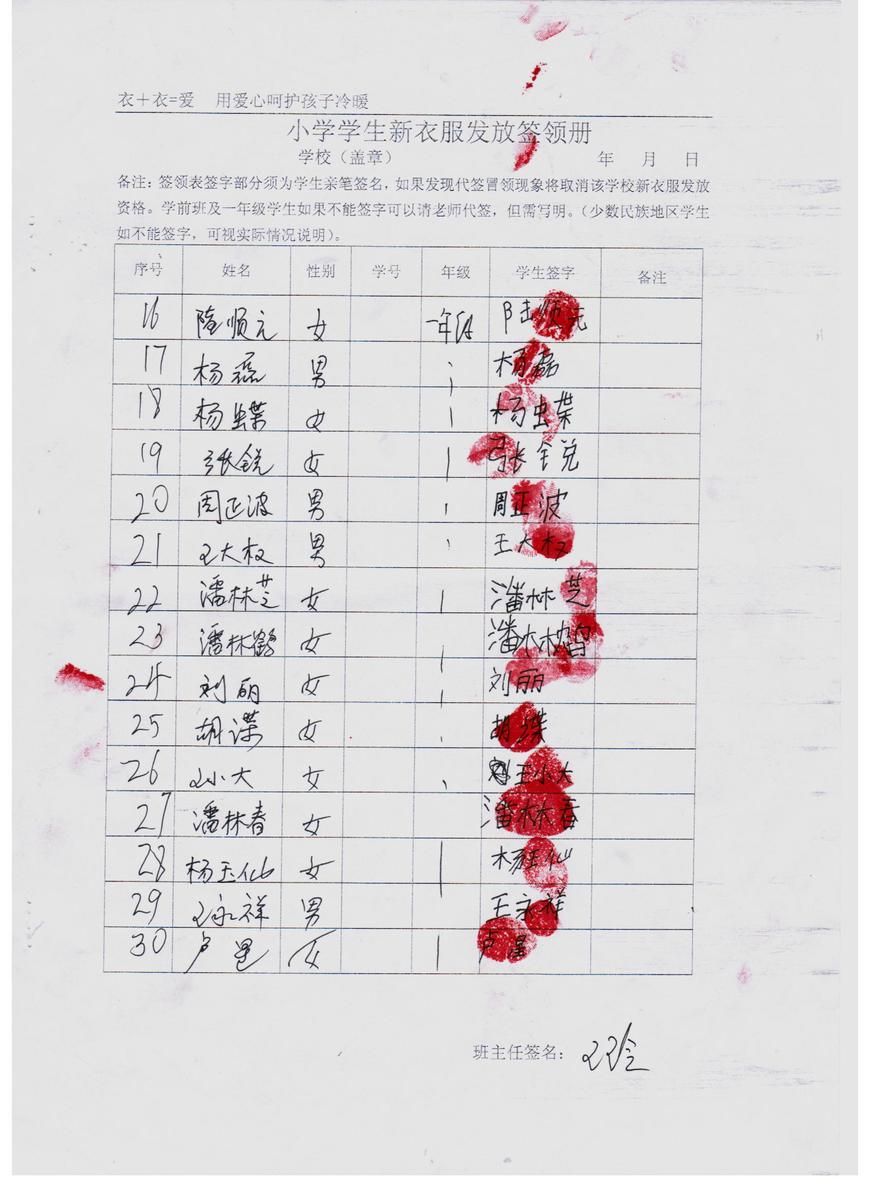 衣+衣=爱 用爱心呵护孩子冷暖
小学学生新衣服发放签领册
学校（盖章） 年 月 日
备注：签领表签字部分须为学生亲笔签名，如果发现代签冒领现象将取消该学校新衣服发放
资格。学前班及一年级学生如果不能签字可以请老师代签，但需写明。（少数民族地区学生
如不能签字，可视实际情况说明）。
序号 姓名 性别 学号 年级 学生签字 备注
16 陆顺元 女 一年级 陆顺元
17 杨磊 男 杨磊
18 杨蝶 女 杨蝶
19 张锐 女 张锐
20 周正波 男 周正波
21 王大权 男 王大权
22 潘林芝 女 潘林芝
23 潘林鹤 女 潘林鹤
24 刘丽 女 刘丽
25 胡蝶 女 胡蝶
26 王小大 女 王小大
27 潘林春 女 潘林春
28 杨玉仙 女 杨玉仙
29 王永祥 男 王永祥
30 卢 女 卢
班主任签名：